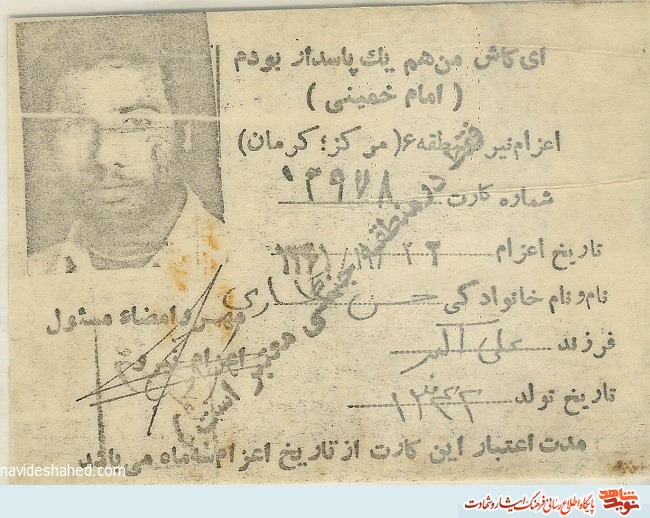 ای کاش من هم یك پاسدار بودم
( امام خمینی )
اعزام نیرو منطقه ۶( مرکز؛ کرمان)
شماره کارت ۱۳۹۷۸
تاریخ اعزام
نام و نام خانوادگی حسن
فرزند علی اکبر
تاریخ تولد
مهر و امضاء مسئول
اعزام نیرو
در منطقه جنگی معتبر است
مدت اعتبار این کارت از تاریخ اعزام ماه می باشد
navideshahed.com
نوید شاهد
پایگاه اطلاع رسانی فرهنگ ایثار و شهادت